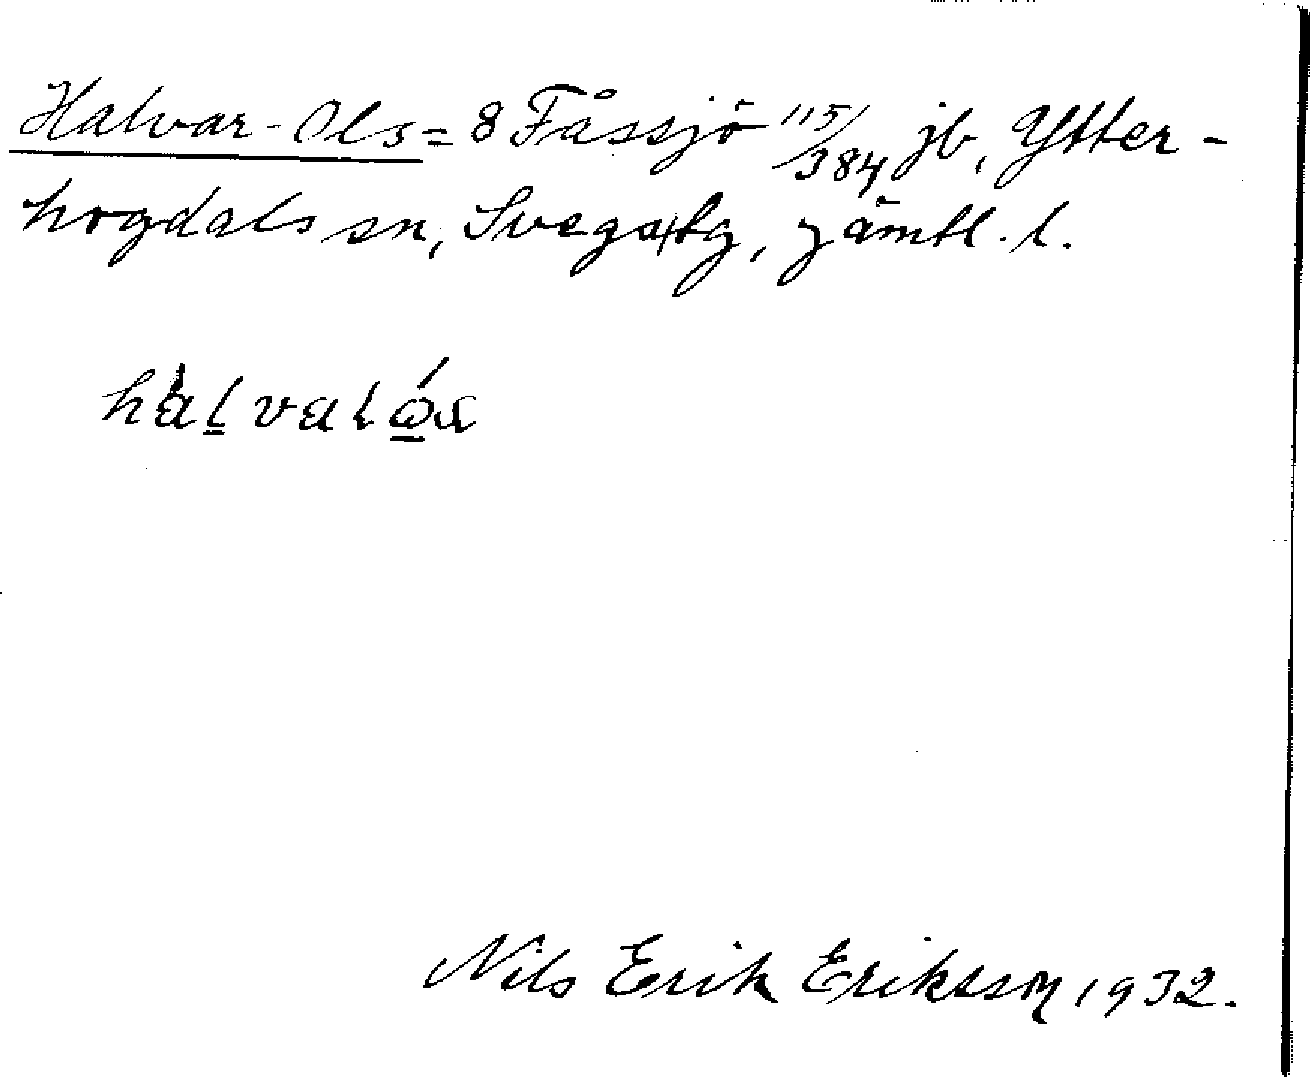 Halvar-Ols = 8 Fåssjö 115/384 jb, Ytter-
hogdals sn, Svegs tg, Jämtl. l.
hàl̠való̠s
Nils Erik Eriksson 1932.